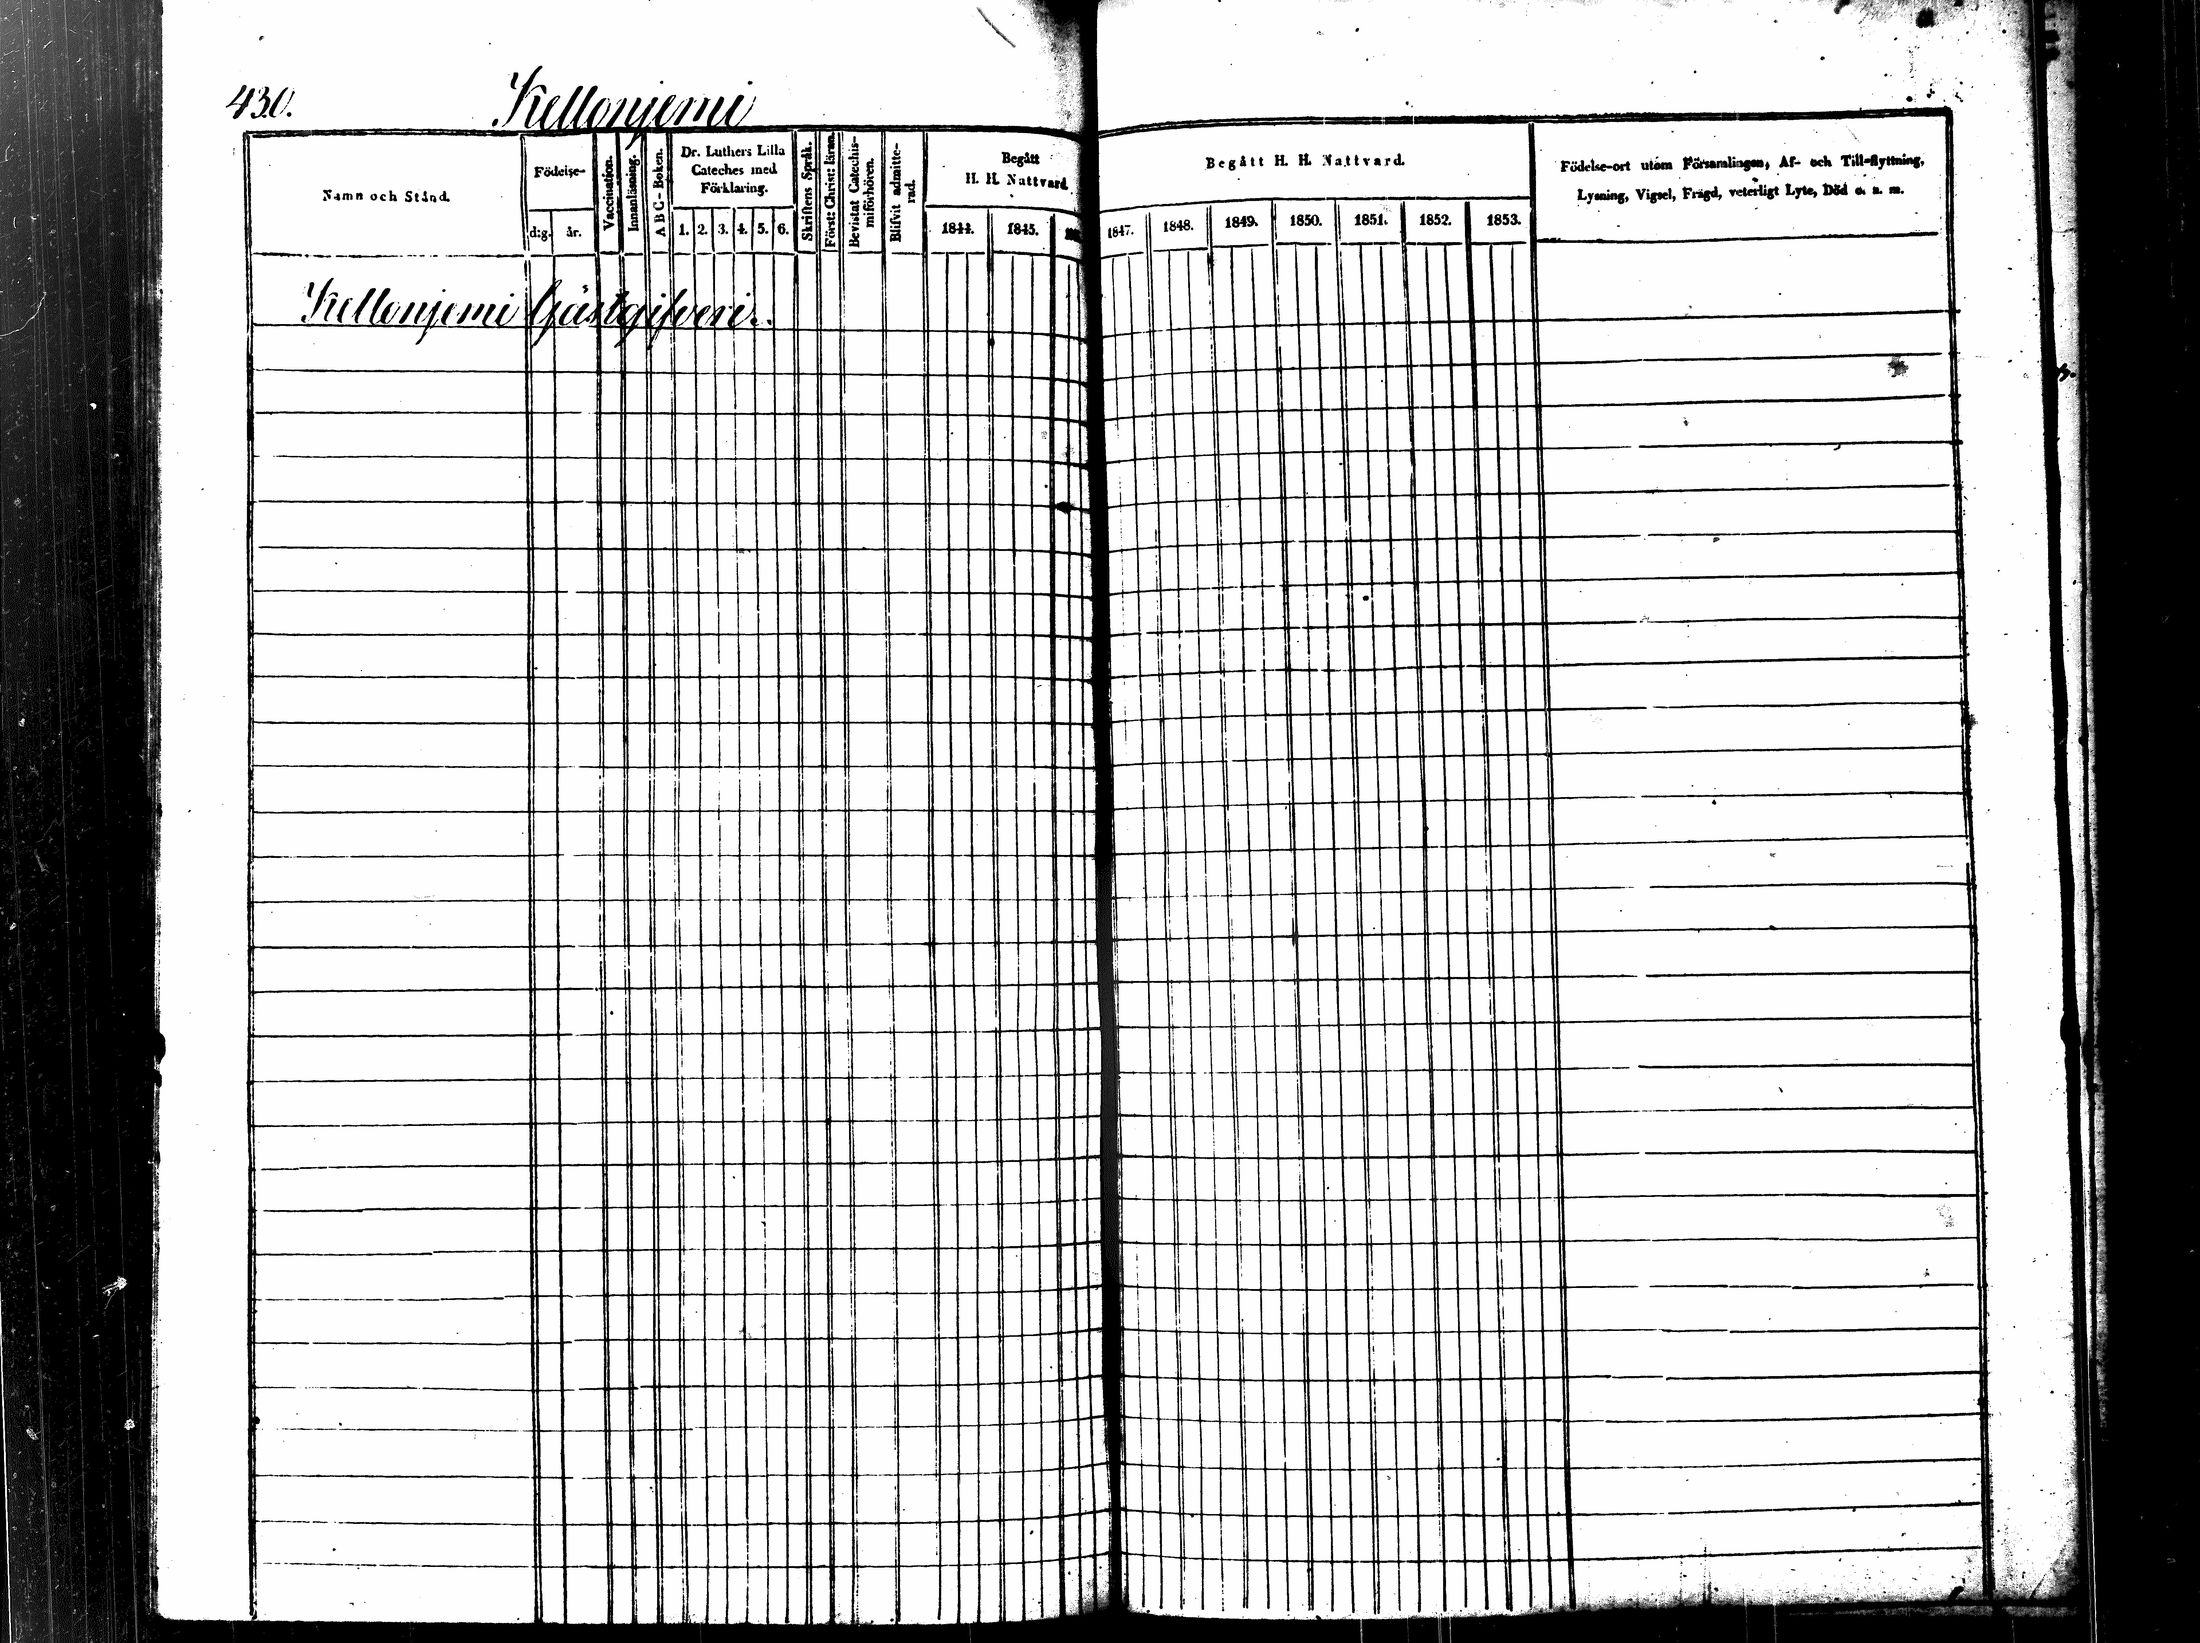 430.
Kellonjemi
Namn och Stånd.
Födelse-
d:g.
år.
Vaccination.
Innanläsning.
A B C-Boken.
Dr. Luthers Lilla
Cateches med
Förklaring.
1. 2. 3. 4. 5. 6.
Skriftens Språk.
Först: Christ: läran.
Bevistat Catechis-
miförhören.
Blifvit admitte-
rad.
Begått
H. H. Nattvard
1844. 1845.
Begått H. H. Nattvard.
1847. 1848. 1849. 1850. 1851. 1852. 1853.
Födelse-ort utom Församlingen, Af- och Till-flyttning,
Lysning, Vigsel, Frägd, veterligt Lyte, Död o. s. m.
Kellonjemi Gästgifveri.